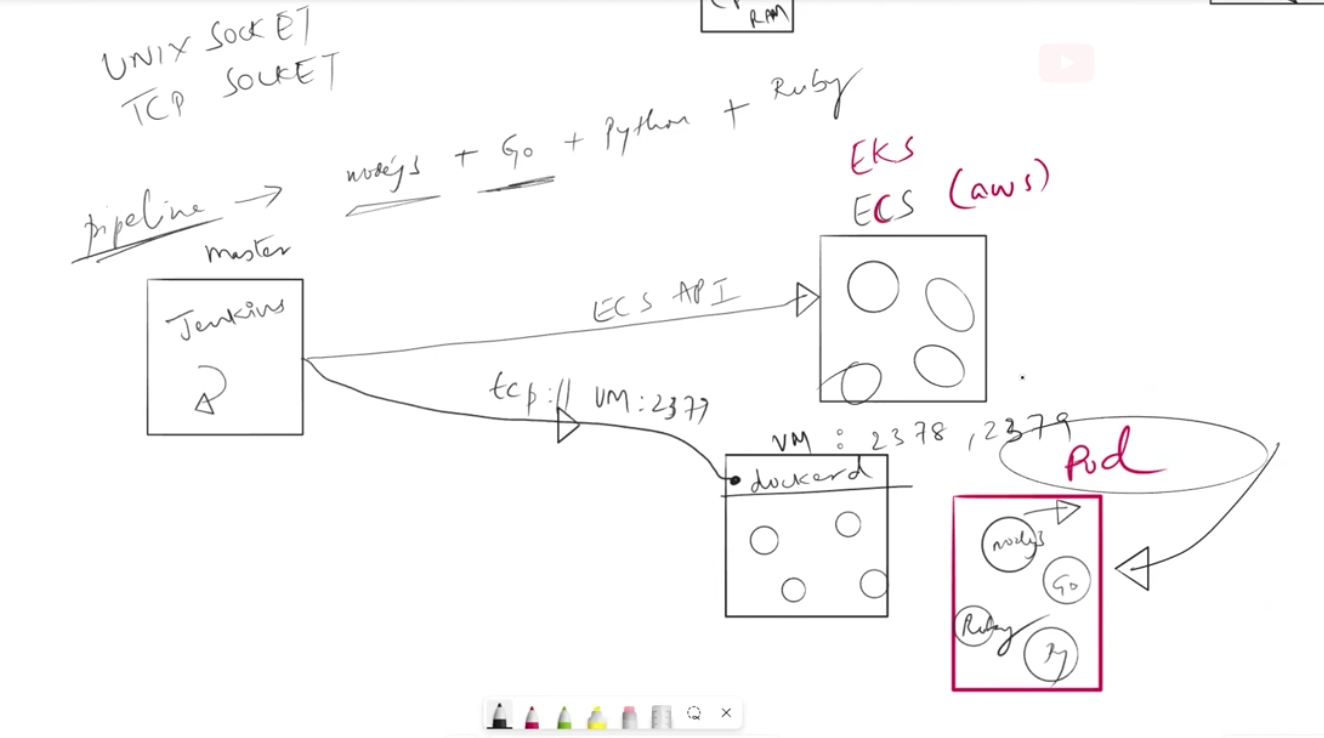 RAM
UNIX SOCKET
TCP SOCKET
pipeline → nodejs + Go + Python + Ruby
EKS
ECS (aws)
master
Jenkins
ECS API
tcp:// VM:2377
VM : 2378, 2379
dockerd
Pod
nodejs
Go
Ruby
Py